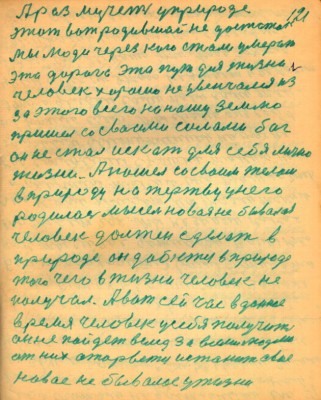 А раз мучет у природе 121
этот вопродивший не достоти
мы люди через кого стали умерат
эта дорога эта пут для жизни
человек хорошо не увенчался из
за этого всего на нашу землю
пришел со своими силами бог
он не стал искат для себя лично
жизни. А пошел со своим телом
в природу на жертву у него
родилас мысел новая не бывалая
человек должен сделат в
природе он добюти в природе
того чего в жизни человек не
получал. А вот сей час в данное
время человек у себя получит
он не пойдет вслед за всеми людми
от них оторвется и станит свае
новае не бывалае у жизни